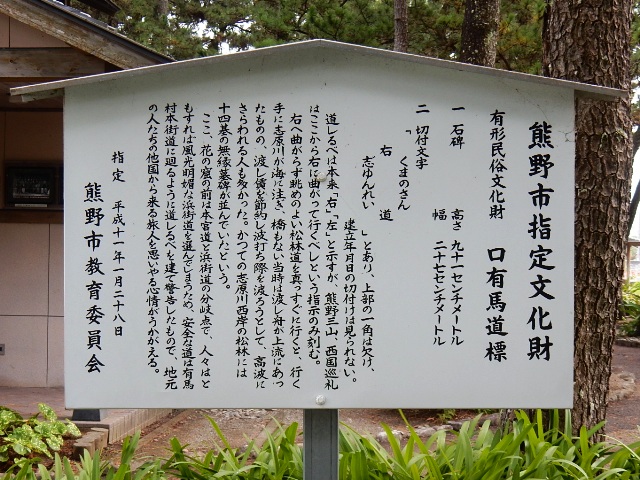 熊野市指定文化財
有形民俗文化財　口有馬道標
一　石碑　高さ　九十一センチメートル
幅　二十七センチメートル
二　切付文字
「　くまのさん
右　道
志ゆんれい　」とあり、上部の一角は欠け、
建立年月日の切付けは見られない。
道しるべは本来「右」「左」と示すが、熊野三山、西国巡礼
はここから右に曲がって行くべしという指示のみ刻む。
右へ曲がらず眺めのよい松林道を真っすぐに行くと、行く
手に志原川が海に注ぎ、橋もない当時は渡し舟が上流にあっ
たものの、渡し賃を節約し波打ち際を渡ろうとして、高波に
さらわれる人も多かった。かつての志原川西岸の松林には
十四基の無縁墓碑が並んでいたという。
ここ、花の窟の前は本宮道と浜街道の分岐点で、人々はと
もすれば風光明媚な浜街道を選んでしまうため、安全な道は有馬
村本街道に廻るように道しるべを建て警告したもので、地元
の人たちの他国から来る旅人を思いやる心情がうかがえる。
指定　平成十一年一月二十八日
熊野市教育委員会